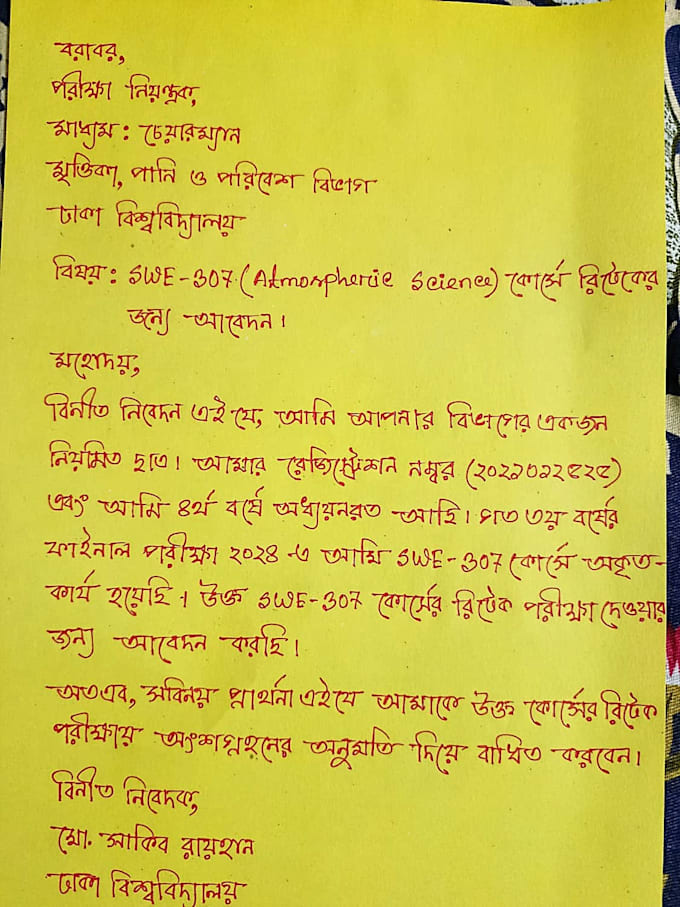 বরাবর,
পরীক্ষা নিয়ন্ত্রক,
মাধ্যম : চেয়ারম্যান
মৃত্তিকা, পানি ও পরিবেশ বিভাগ
ঢাকা বিশ্ববিদ্যালয়
বিষয় : SWE-307 (Atmospheric Science) কোর্সে রিটেকের
জন্য আবেদন।
মহোদয়,
বিনীত নিবেদন এই যে, আমি আপনার বিভাগের একজন
নিয়মিত ছাত্র। আমার রেজিস্ট্রেশন নম্বর
এবং আমি ৪র্থ বর্ষে অধ্যয়নরত আছি। গত ৩য় বর্ষের
ফাইনাল পরীক্ষা ২০২৪ -এ আমি SWE-307 কোর্সে অকৃত-
কার্য হয়েছি। উক্ত SWE-307 কোর্সের রিটেক পরীক্ষা দেওয়ার
জন্য আবেদন করছি।
অতএব, সবিনয় প্রার্থনা এইযে আমাকে উক্ত কোর্সের রিটেক
পরীক্ষায় অংশগ্রহনের অনুমতি দিয়ে বাধিত করবেন।
বিনীত নিবেদক,
মো. সাকিব রায়হান
ঢাকা বিশ্ববিদ্যালয়